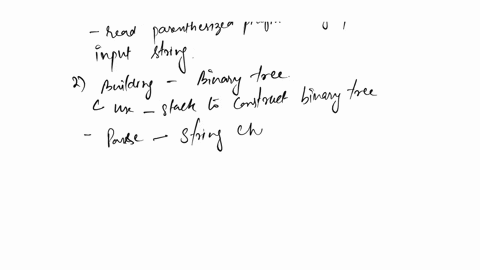 - read parenthesized
input string.
2) Building - Binary tree
C use - stack to construct binary tree
- Parse - String Ch